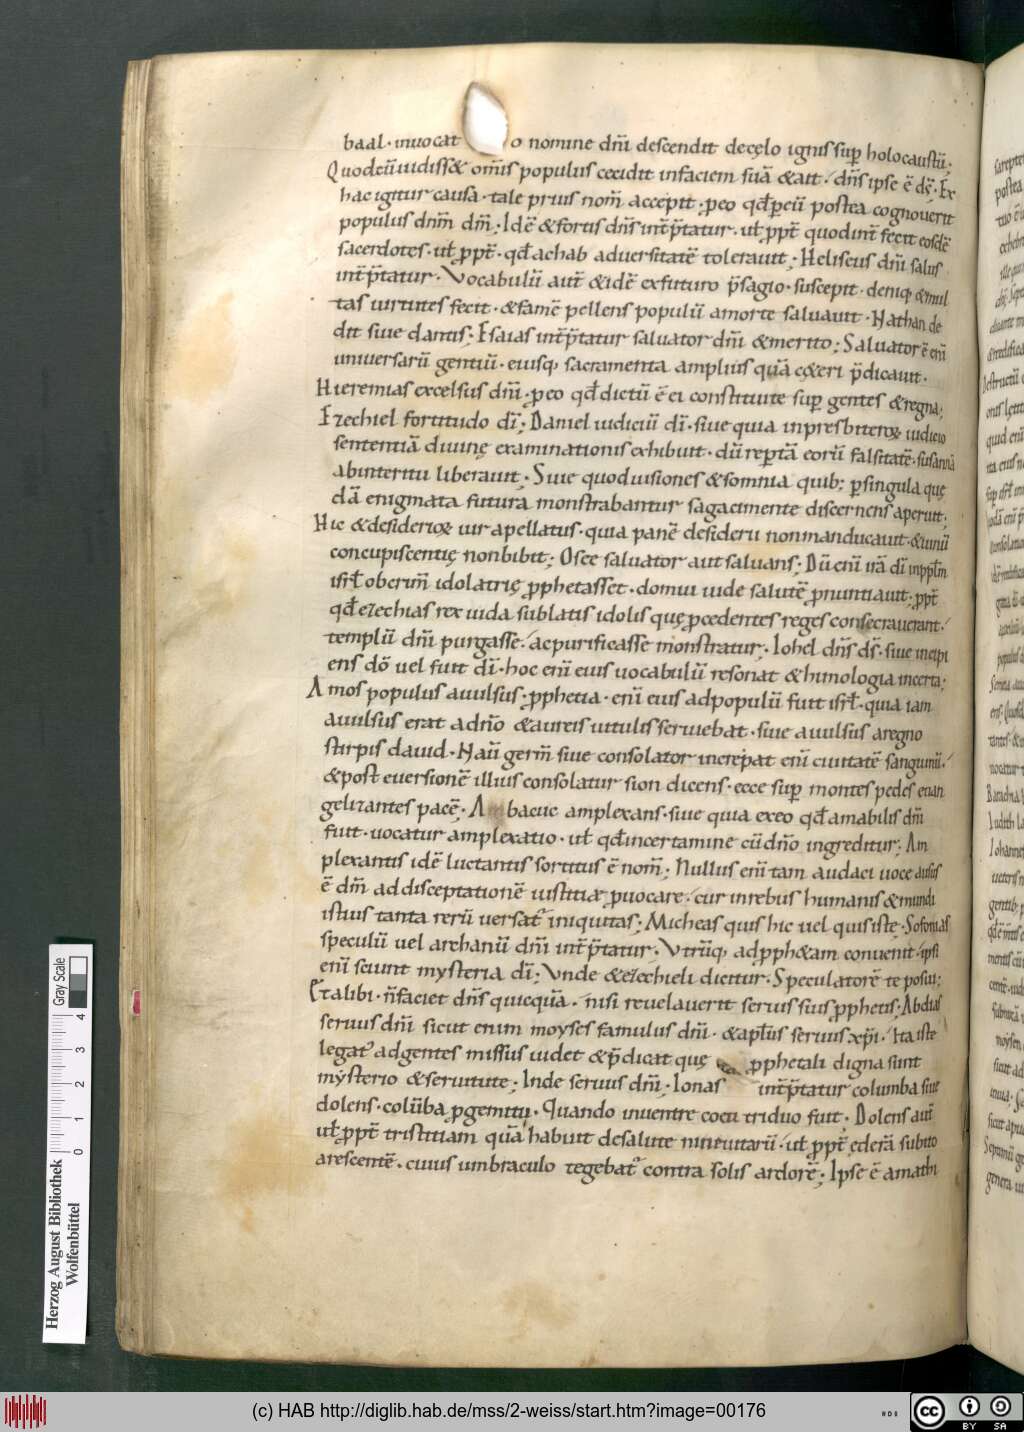 baal · inuocat o nomine dn̄i descendit decęlo ignis sup̲ holocaustū ·
Quodcū uidiss& om̄is populus cecidit infaciem suā & ait · dn̄s ipse ē ds̄ · Ex
hac igitur causa · tale prius nom̄ accepit ; p̲eo qd̄ p̲eū postea cognouerit
populus dn̄m dm̄ ; Idē & fortis dn̄s int̄p̄tatur · ut̄ p̲pt̄ quodint̄ fecit eosdē
sacerdotes · ut̄ p̲pt̄ · qd̄ achab aduersitatē tolerauit ; Heliseus dn̄i salus
int̄p̄tatur · Vocabulū aut̄ & idē exfuturo p̄sagio · suscepit · deniq; & mul
tas uirtutes fecit · & famē pellens populū amorte saluauit · Nathan de
dit siue dantis ; Esaias int̄p̄tatur saluator dn̄i & merito ; Saluatorē en̄i
uniuersarū gentiū · eiusq; sacramenta amplius quā c&eri p̄dicauit ·
Hieremias excelsus dn̄i · p̲eo qd̄ dictū ē ei constitui te sup̲ gentes & regna ;
Ezechiel fortitudo dī ; Daniel iudiciū dī · siue quia inpresbiteroꝝ iudicio
sententiā diuinę examinationis exhibuit · dū rep̲tā eorū falsitatē · susannā
abinteritu liberauit · Siue quod uisiones & somnia quib; p̲singula quę
dā enigmata futura monstrabantur sagaci mente discernens aperuit ;
Hic & desiderioꝝ uir apellatus · quia panē desiderii non manducauit · & uinū
concupiscentię non bibit ; Osee saluator aut saluans ; Dū enī irā dī inpp̲lm̄
isrl̄ ob crim̄ idolatrię p̲phetasset · domui iude salutē p̲nuntiauit ; p̲pt̄
qd̄ ezechias rex iuda sublatis idolis quę p̲cedentes reges consecrauerant ·
templū dn̄i purgasse · ac purificasse monstratur · Iohel dn̄s ds̄ · siue incipi
ens dō uel fuit dī · hoc enī eius uocabulū resonat & himologia incerta ;
Amos populus auulsus · p̲phetia · enī eius adpopulū fuit isrl̄ · quia iam
auulsus erat a dn̄o & aureis uitulis seruiebat · siue auulsus aregno
stirpis dauid · Naū germ̄ siue consolator increpat enī ciuitatē sanguinū ·
& post euersionē illius consolatur sion dicens · ecce sup̲ montes pedes euan
gelizantes pacē · Am bacuc amplexans · siue quia exeo qd̄ amabilis dn̄i
fuit · uocatur amplexatio · ut̄ qd̄ incertamine cū dn̄o ingreditur ; Am
plexantis idē luctantis sortitus ē nom̄ ; Nullus enī tam audaci uoce ausus
ē dm̄ ad disceptationē iustitiæ p̲uocare · cur inrebus humanis & mundi
istius tanta rerū uersat̄ iniquitas ; Micheas quis hic uel quis iste · Sofonias
speculū uel archanū dn̄i int̄p̄tatur · Vtrūq; adp̲ph&am conuenit · ipsi
enī sciunt mysteria dī ; Vnde & ezechieli dicitur · Speculatorē te posui ;
Et alibi · n̄ faciet dn̄s quicquā · nisi reuelauerit seruis suis p̲phetis ; Abdias
seruus dn̄i sicut enim moyses famulus dn̄i · & apl̄us seruus xp̄i · Ita iste
legat̄ adgentes missus uidet & p̄dicat quę p̲phetali digna sunt
mysterio & seruitute ; Inde seruus dn̄i ; Ionas int̄p̄tatur columba siue
dolens · colūba p̲gemitu · Quando inuentre coeti triduo fuit · Dolens aut̄
ut̄ p̲pt̄ tristitiam quā habuit desalute niniuitarū · ut̄ p̲pt̄ ęderā subito
arescentē · cuius umbraculo tegebat̄ contra solis ardorē ; Ipse ē amathi
sarepte
postea
Herzog August Bibliothek
Wolfenbüttel
Gray Scale
0 1 2 3 4
(c) HAB http://diglib.hab.de/mss/2-weiss/start.htm?image=00176
cc BY SA